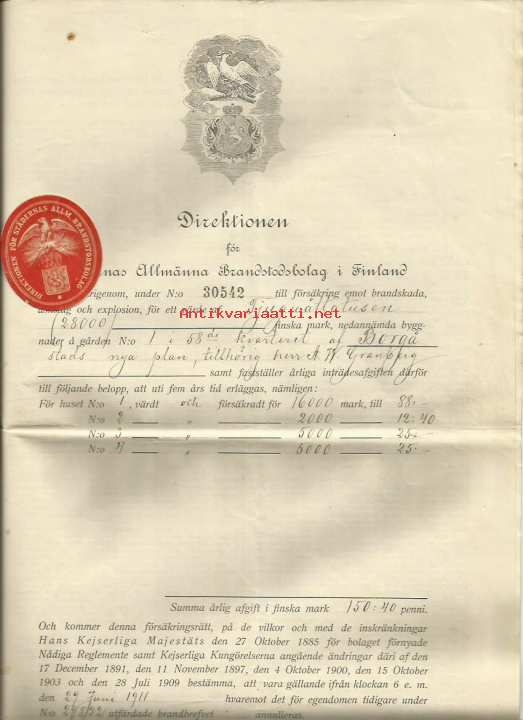 Direktionen
för
nas Allmänna Brandstodsbolag i Finland
DIREKTIONEN FÖR STÄDERNAS ALLM. BRANDSTODSBOLAG
rigenom, under N:o 30542 till försäkring emot brandskada,
och explosion, för ett värde
(28000) finska mark, nedannämda bygg-
nader å gården N:o 1 i 58de kvarteret af Borgå
stads nya plan, tillhörig herr A W Granberg
samt fastställer årliga inträdesafgiften därför
till följande belopp, att uti fem års tid erläggas, nämligen:
För huset N:o 1, värdt och försäkradt för 16000 mark, till 88:-
N:o 2 „ 2000 12:40
N:o 3 „ 5000 25:-
N:o 4 „ 5000 25:-
Antikvariaatti.net
Summa årlig afgift i finska mark 150:40 penni.
Och kommer denna försäkringsrätt, på de vilkor och med de inskränkningar
Hans Kejserliga Majestäts den 27 Oktober 1885 för bolaget förnyade
Nådiga Reglemente samt Kejserliga Kungörelserna angående ändringar däri af den
17 December 1891, den 11 November 1897, den 4 Oktober 1900, den 15 Oktober
1903 och den 28 Juli 1909 bestämma, att vara gällande ifrån klockan 6 e. m.
den 29 Juni 1911 hvaremot det för egendomen tidigare under
N:o utfärdade brandbrefvet annulleras.